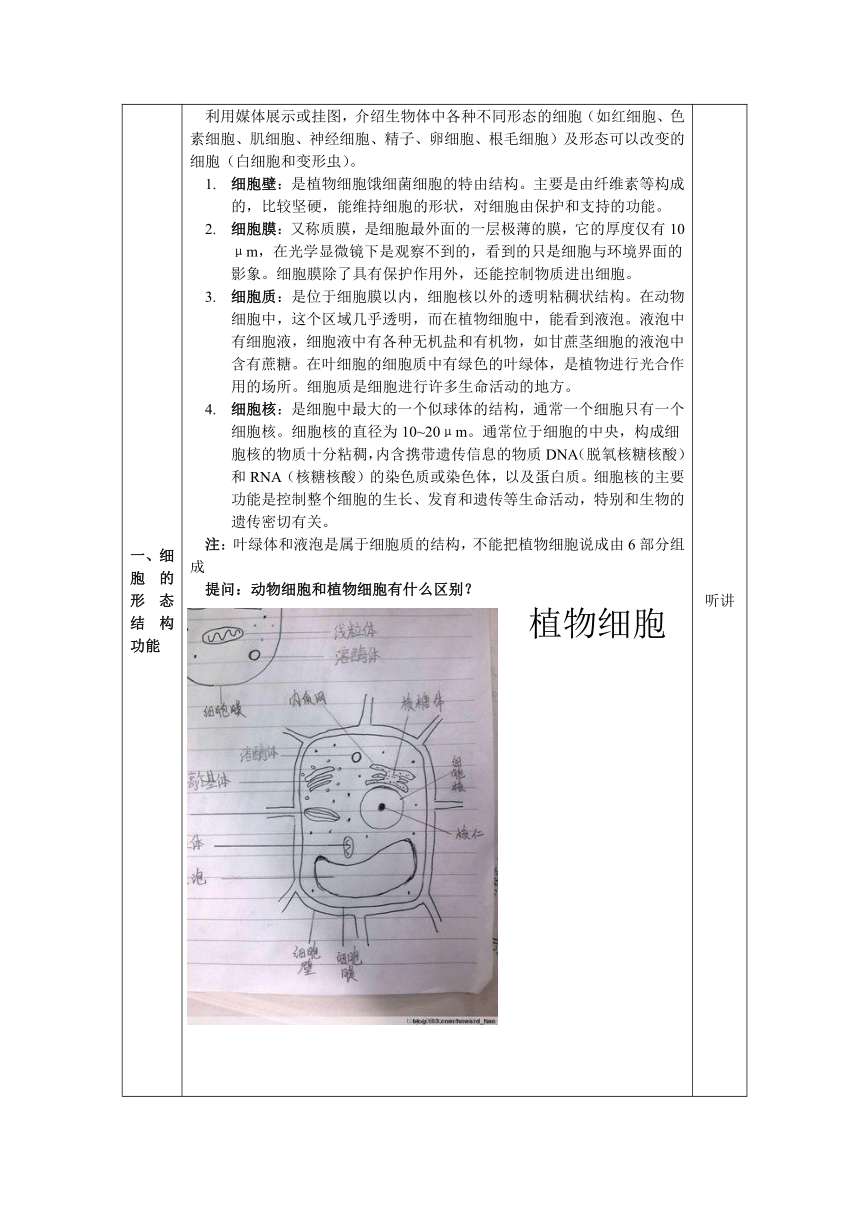 利用媒体展示或挂图，介绍生物体中各种不同形态的细胞（如红细胞、色
素细胞、肌细胞、神经细胞、精子、卵细胞、根毛细胞）及形态可以改变的
细胞（白细胞和变形虫）。
1. 细胞壁：是植物细胞饿细菌细胞的特由结构。主要是由纤维素等构成
的，比较坚硬，能维持细胞的形状，对细胞由保护和支持的功能。
2. 细胞膜：又称质膜，是细胞最外面的一层极薄的膜，它的厚度仅有 10
μm，在光学显微镜下是观察不到的，看到的只是细胞与环境界面的
影象。细胞膜除了具有保护作用外，还能控制物质进出细胞。
3. 细胞质：是位于细胞膜以内，细胞核以外的透明粘稠状结构。在动物
细胞中，这个区域几乎透明，而在植物细胞中，能看到液泡。液泡中
有细胞液，细胞液中有各种无机盐和有机物，如甘蔗茎细胞的液泡中
含有蔗糖。在叶细胞的细胞质中有绿色的叶绿体，是植物进行光合作
用的场所。细胞质是细胞进行许多生命活动的地方。
4. 细胞核：是细胞中最大的一个似球体的结构，通常一个细胞只有一个
细胞核。细胞核的直径为 10~20μm。通常位于细胞的中央，构成细
胞核的物质十分粘稠,内含携带遗传信息的物质 DNA（脱氧核糖核酸）
和 RNA（核糖核酸）的染色质或染色体，以及蛋白质。细胞核的主要
功能是控制整个细胞的生长、发育和遗传等生命活动，特别和生物的
遗传密切有关。
注：叶绿体和液泡是属于细胞质的结构，不能把植物细胞说成由 6 部分组
成
提问：动物细胞和植物细胞有什么区别？
一、细
胞 的
形 态
结 构
功能
听讲
植物细胞
线粒体
溶酶体
细胞膜
内质网
核糖体
溶酶体
高尔基体
细胞核
体
核仁
泡
细胞壁
细胞膜
blog.163.com/howard_hao